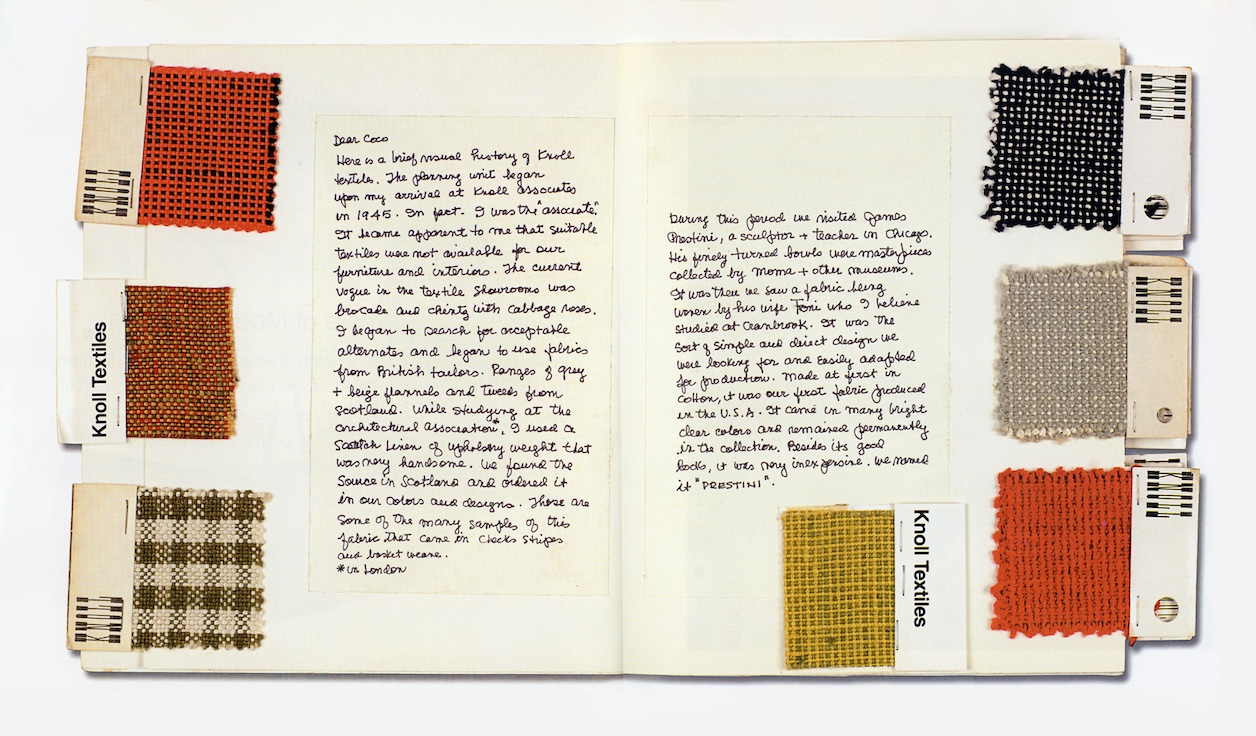 KNOLL
Knoll Textiles
KNOLL
Dear Coco
Here is a brief visual history of Knoll
textiles. The planning unit began
upon my arrival at Knoll associates
in 1945. In fact - I was the "associate".
It became apparent to me that suitable
textiles were not available for our
furniture and interiors. The current
vogue in the textile showrooms was
brocade and chintz with cabbage roses.
I began to search for acceptable
alternates and began to use fabrics
from British tailors. Ranges of grey
+ beige flannels and tweeds from
Scotland. While studying at the
architectural association*, I used a
Scottish linen of upholstry weight that
was very handsome. We found the
source in Scotland and ordered it
in our colors and designs. Those are
some of the many samples of this
fabric that came in checks stripes
and basket weave.
*in London
During this period we visited James
Prestini, a sculptor + teacher in Chicago.
His finely turned bowls were masterpieces
collected by Moma + other museums.
It was then we saw a fabric being
woven by his wife Toni who I believe
studied at Cranbrook. It was the
sort of simple and direct design we
were looking for and easily adapted
for production. Made at first in
cotton, it was our first fabric produced
in the U.S.A. It came in many bright
clear colors and remained permanently
in the collection. Besides its good
looks, it was very inexpensive. We named
it "PRESTINI".
Knoll Textiles
KNOLL
KNOLL
KNOLL